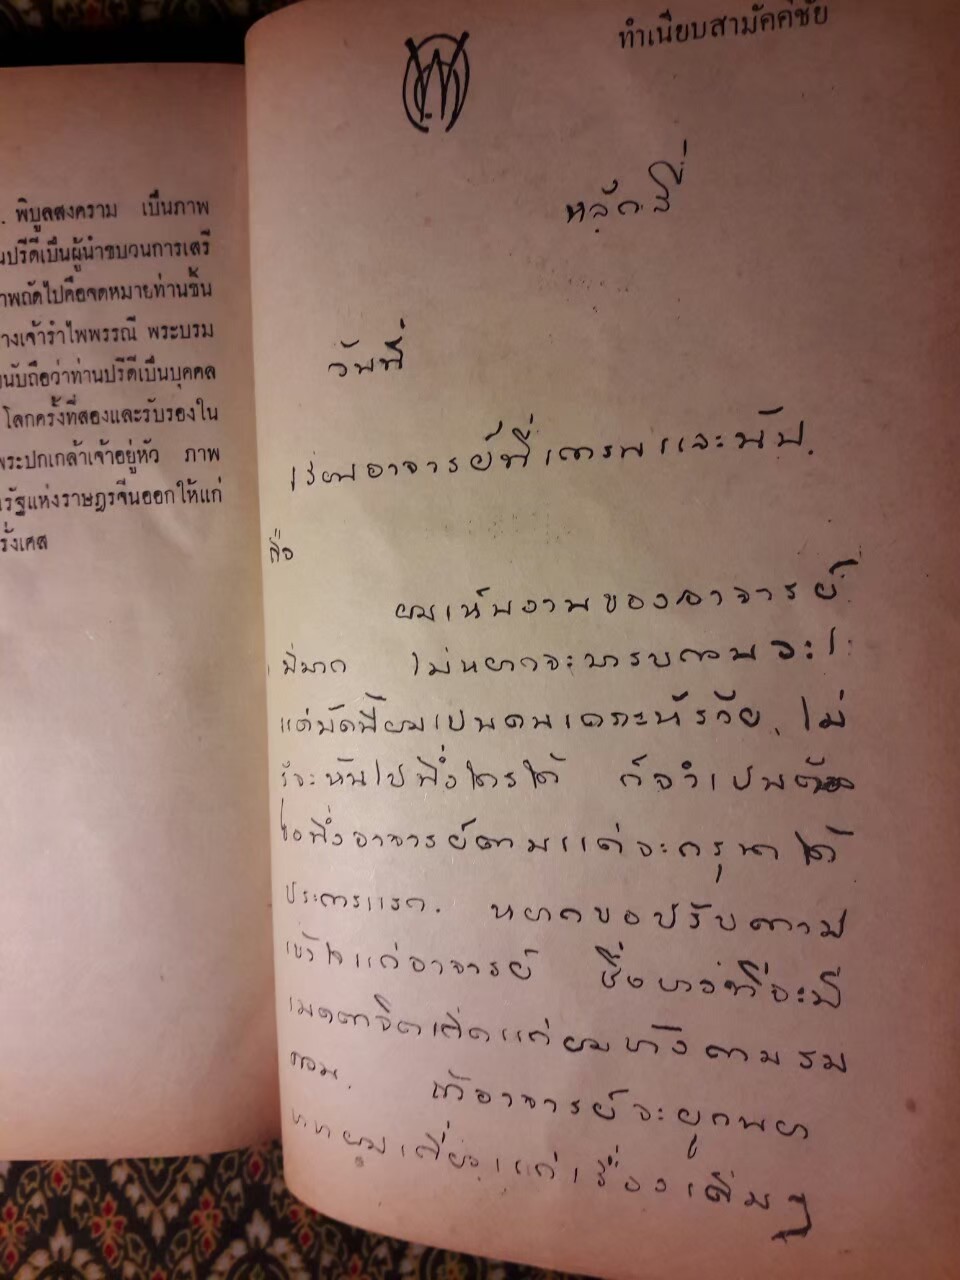 . พิบูลสงคราม เป็นภาพ
นปรีดีเป็นผู้นำขบวนการเสรี
าพถัดไปคือจดหมายท่านชิ้น
างเจ้ารำไพพรรณี พระบรม
นับถือว่าท่านปรีดีเป็นบุคคล
โลกครั้งที่สองและรับรองใน
พระปกเกล้าเจ้าอยู่หัว ภาพ
นรัฐแห่งราษฎรจีนออกให้แก่
รั่งเศส
ทำเนียบสามัคคีชัย
หลักสี่
วันที่
เรียนอาจารย์ที่เคารพและนับ
ถือ
ผมเห็นงานของอาจารย์
มีมาก ไม่หยากจะมารบกวน
แต่บัดนี้ผมเปนคนเคราะห์ร้าย ไม่
รู้จะหันไปพึ่งใครได้ ก็จำเปนต้อง
ขอพึ่งอาจารย์ตามแต่จะกรุนาได้
ประการแรก. หยากขอปรับความ
เข้าใจแก่อาจารย์ ซึ่งหวังที่จะมี
เมตตาจิตเกิดแก่ผมบ้างตามสม
ควน. ถ้าอาจารย์จะผูกพยา
บาทผมเกี่ยวแก่เรื่องเดิมๆ